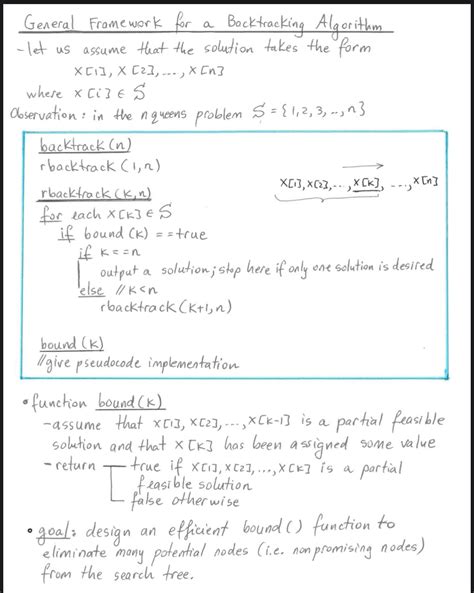 General Framework for a Backtracking Algorithm
- let us assume that the solution takes the form
X[1], X[2], ..., X[n]
where X[i] ∈ S
Observation: in the n queens problem S = {1,2,3,..,n}
backtrack(n)
rbacktrack(1,n)
rbacktrack(k,n)
X[1],X[2],..,X[k],...,X[n]
for each X[k] ∈ S
if bound(k) == true
if k == n
output a solution; stop here if only one solution is desired
else // k<n
rbacktrack(k+1,n)
bound(k)
//give pseudocode implementation
• function bound(k)
- assume that X[1], X[2],...,X[k-1] is a partial feasible
solution and that X[k] has been assigned some value
- return true if X[1],X[2],...,X[k] is a partial
feasible solution
false otherwise
• goal: design an efficient bound() function to
eliminate many potential nodes (i.e. nonpromising nodes)
from the search tree.